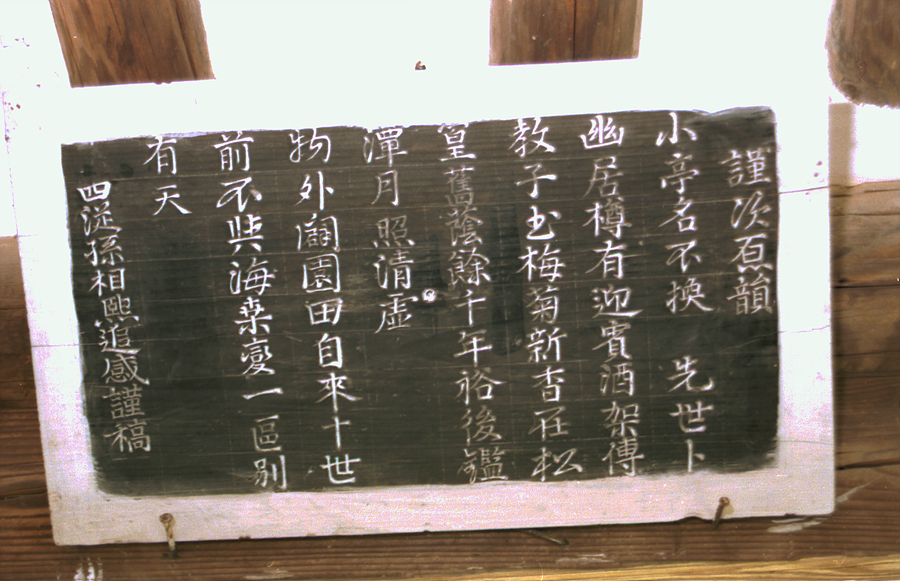 謹次原韻
小亭名不換 先世卜
幽居樽有迎賓酒架傳
教子書梅菊新香在松
篁舊蔭餘千年裕後鑑
潭月照清虛
物外闢園田自來十世
前不與海桑變一區別
有天
四從孫相熙追感謹稿